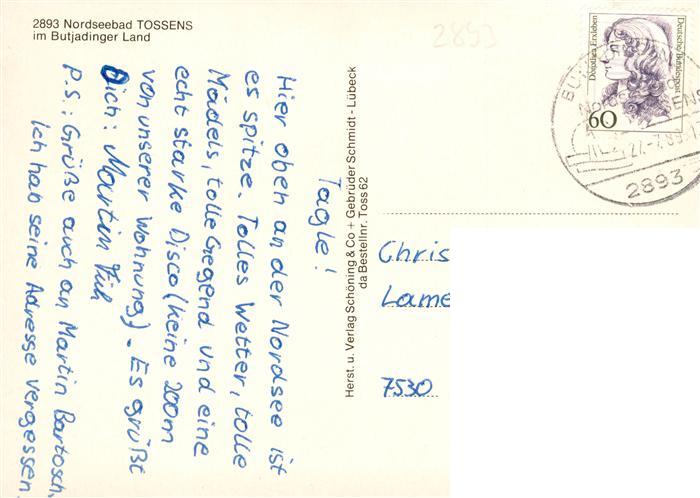 2893 Nordseebad TOSSENS
im Butjadinger Land
Tagle!
Hier oben an der Nordsee ist
es spitze. Tolles Wetter, tolle
Mädels, tolle Gegend und eine
echt starke Disco (keine 200m
von unserer Wohnung). Es grüßt
Dich: Martin
P.S.: Grüße auch an Martin Bartosch,
Ich hab seine Adresse vergessen.
Herst. u. Verlag Schöning & Co + Gebrüder Schmidt - Lübeck
da Bestellnr. Toss 62
2893
Dorothea Erxleben
Deutsche Bundespost
60
2893
Chris
Lame
7530